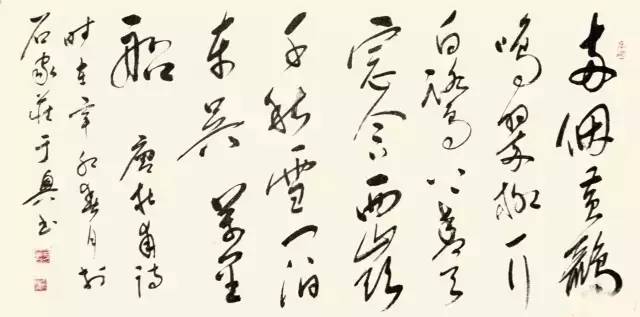 兩個黃鸝
鳴翠柳一行
白鷺上青天
窗含西嶺
千秋雪門泊
東吳萬里
船 唐杜甫詩
時在辛卯春月於
石家莊于書